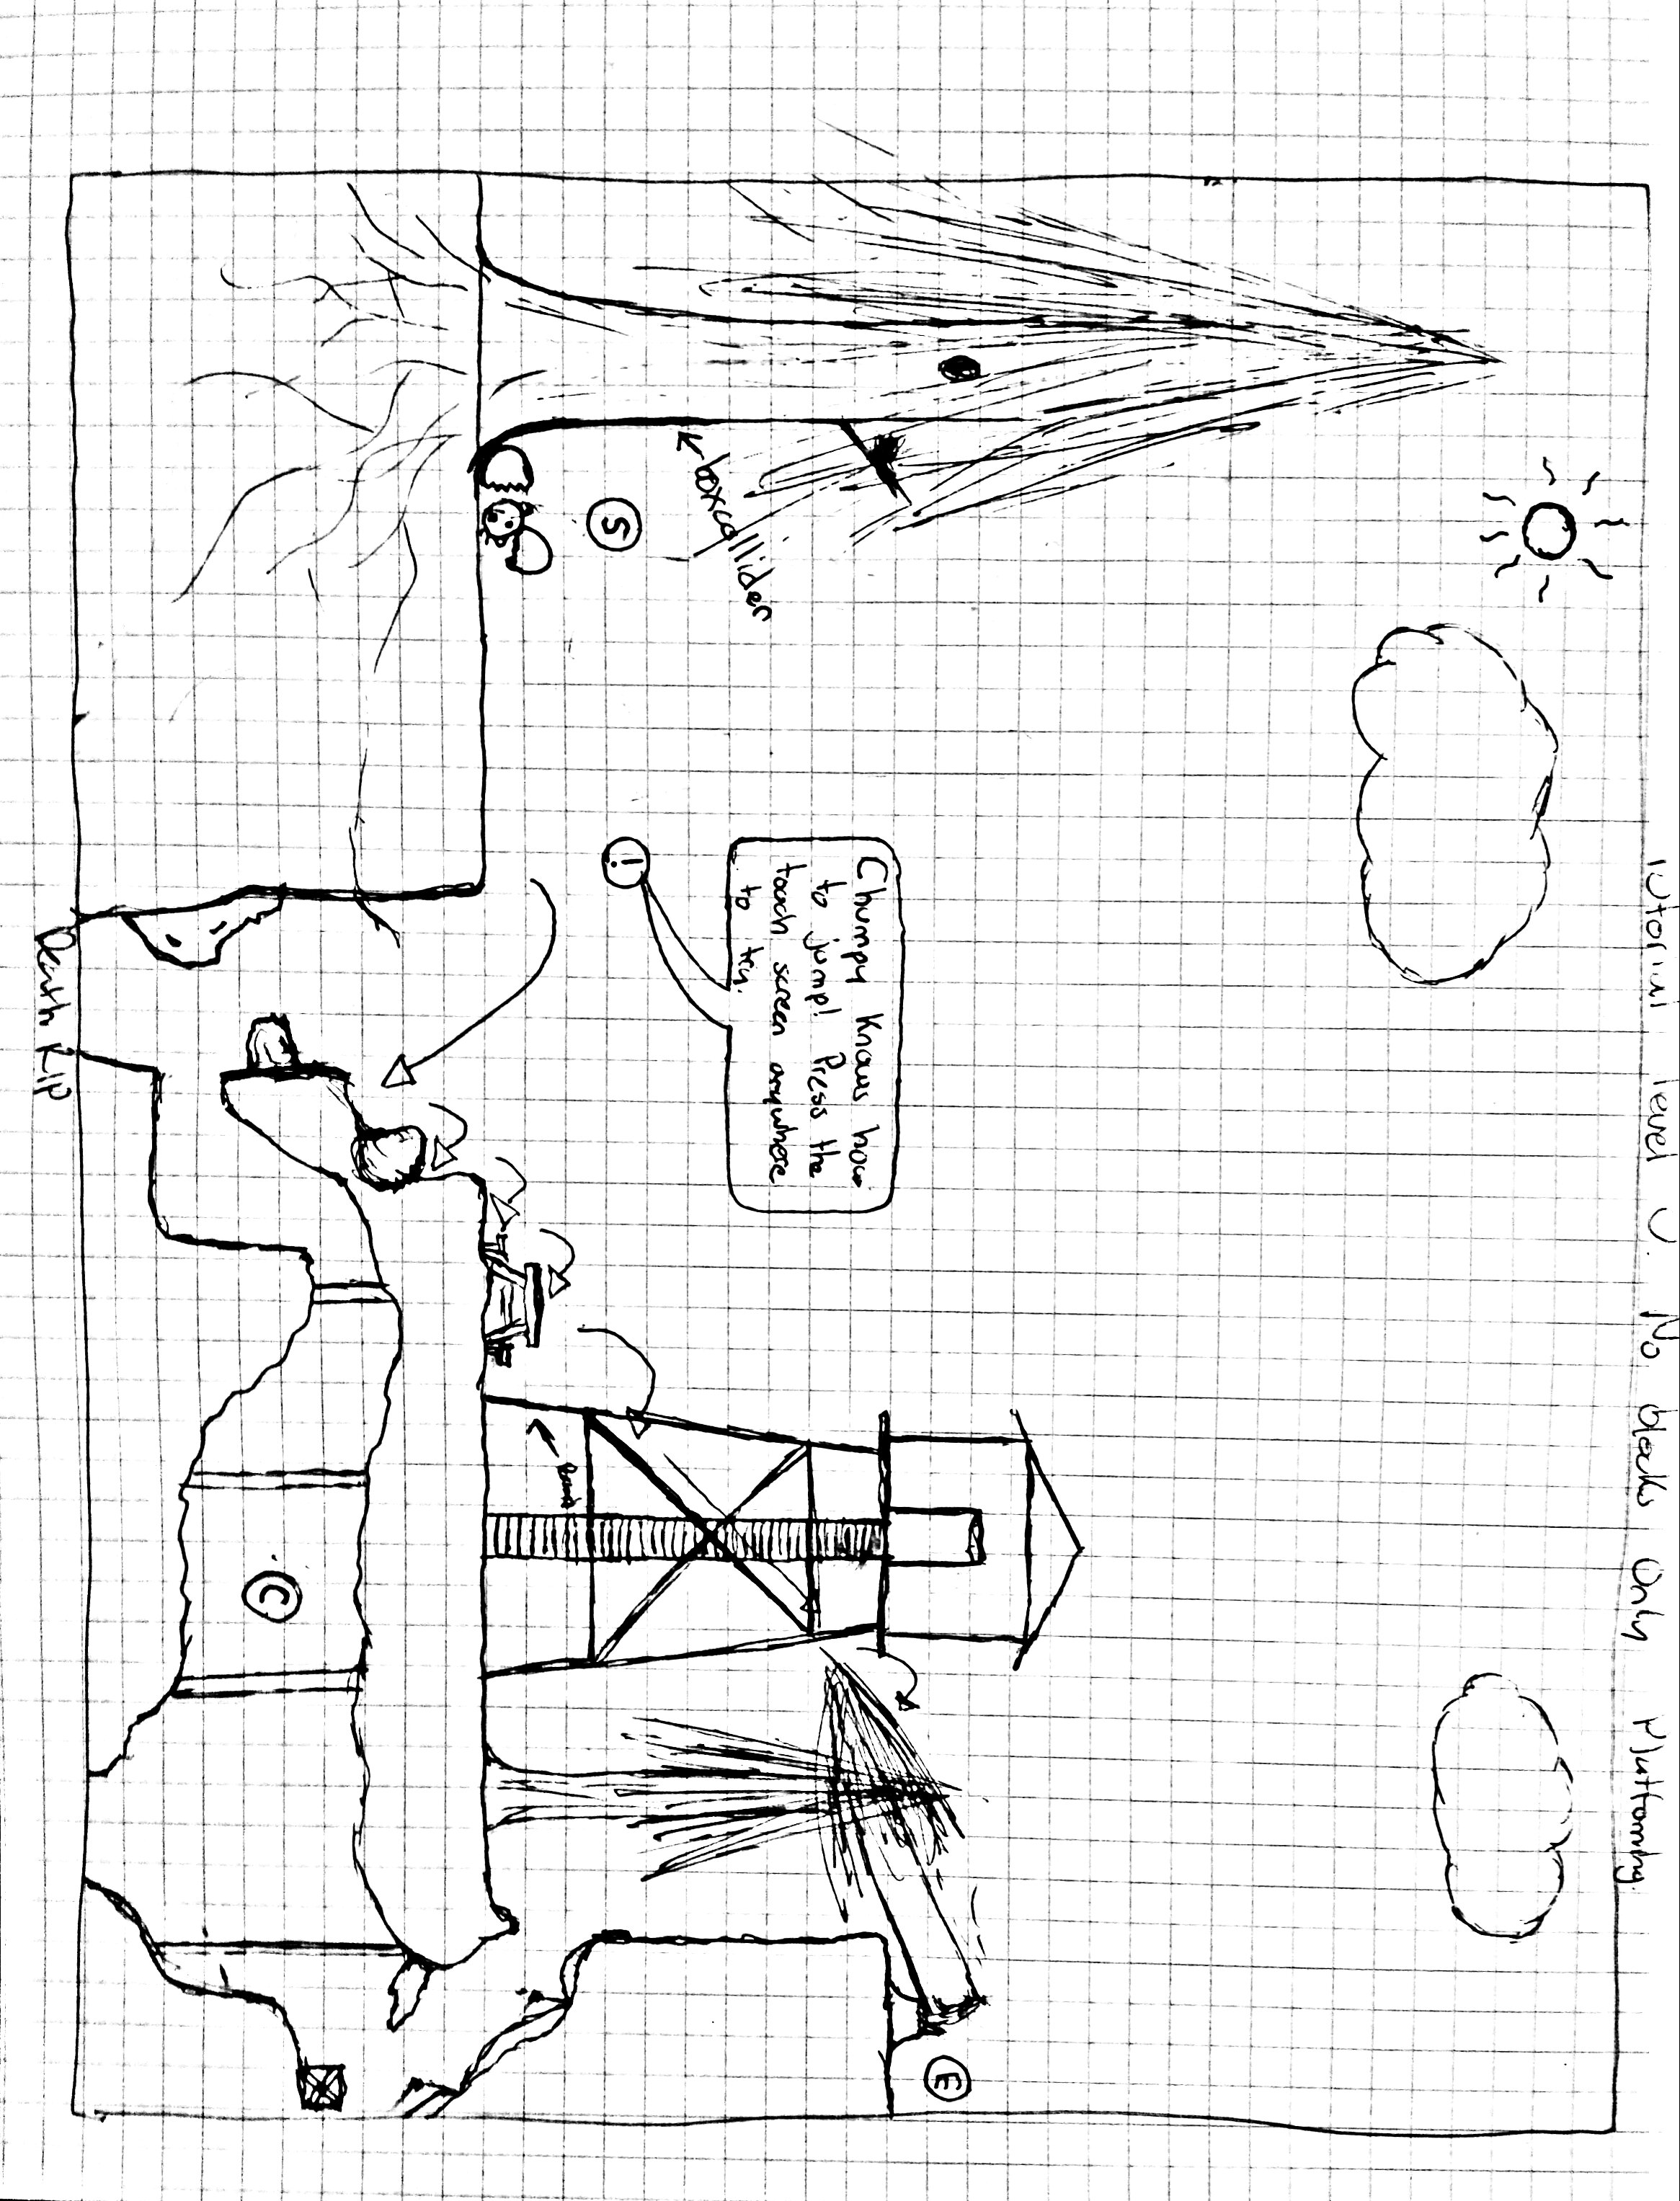 Tutorial level 0. No blocks Only Plattoming.
Chumpy Knows how
to jump! Press the
touch screen anywhere
to try.
!
boxcollider
S
C
E
Death RIP